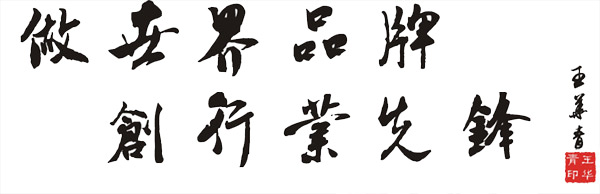 做世界品牌
創行業先鋒
王華青
王华青印